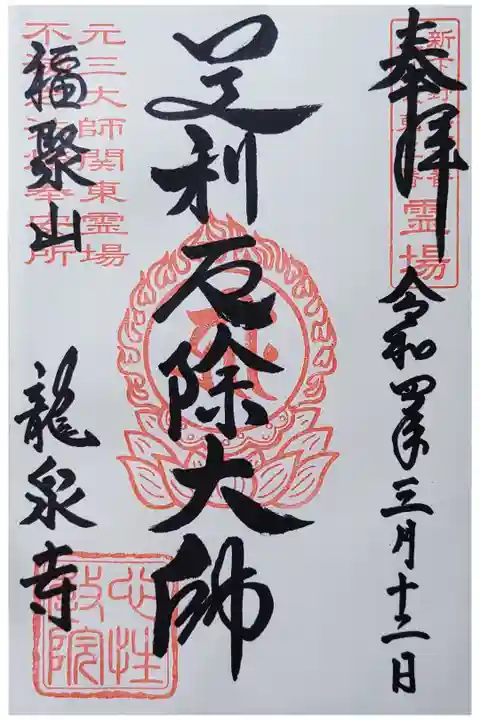 奉拝
令和四年三月十二日
足利厄除大師
福聚山
龍泉寺
元三大師関東霊場
霊場
心性
教院